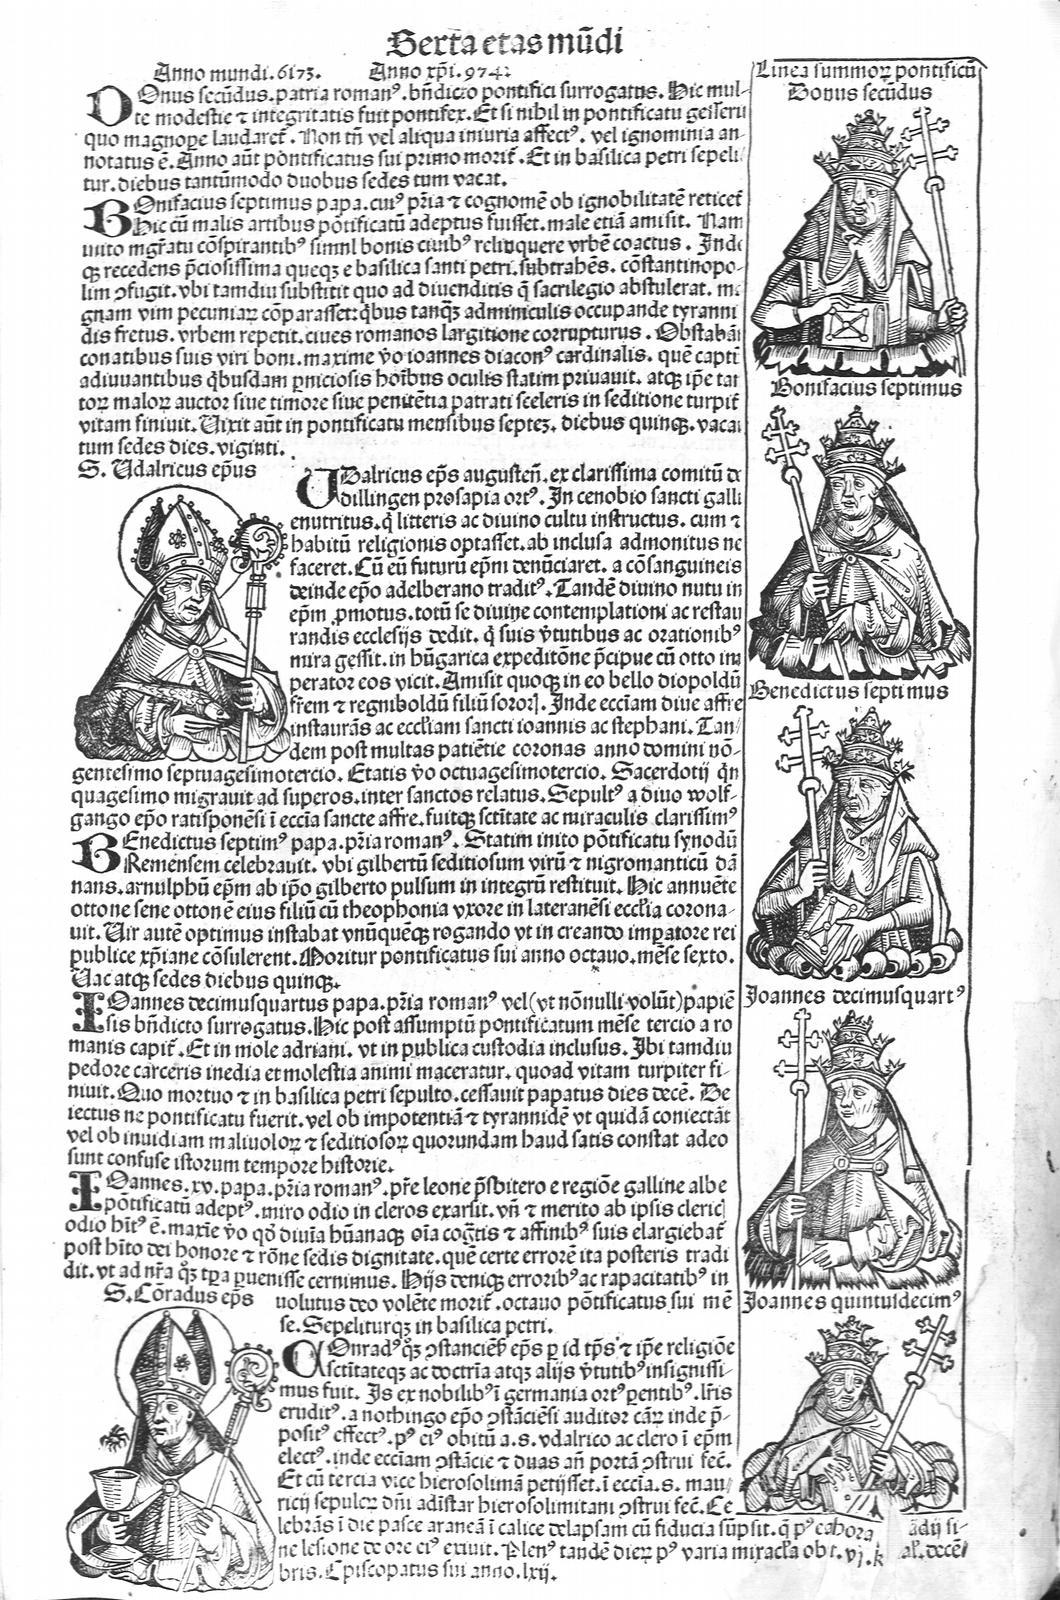 Sexta etas mūdi
Anno mundi. 6173. Anno xp̄i. 974.
Linea summoꝝ pontificū
DOnus secūdus. patria romanꝰ. bn̄dicto pontifici surrogatus. Hic mul-
te modestie ⁊ integritatis fuit pontifex. Et si nihil in pontificatu gesseru
quo magnope laudaret̄. Non tn̄ vel aliqua iniuria affectꝰ. vel ignominia an-
notatus ē. Anno aūt pōntificatus sui primo morit̄. Et in basilica petri sepeli
tur. diebus tantūmodo duobus sedes tum vacat.
BOnifacius septimus papa. cuiꝰ pr̄ia ⁊ cognomē ob ignobilitatē reticet̄
Hic cū malis artibus pōtificatū adeptus fuisset. male etiā amisit. Nam
inito mgr̄atu cōspirantibꝰ simul bonis ciuibꝰ relinquere vrbē coactus. Inde
qꝫ recedens p̄ciosissima queqꝫ e basilica santi petri. subtrahēs. cōstantinopo-
lim ꝯfugit. vbi tamdiu substitit quo ad diuenditis q̄ sacrilegio abstulerat. m
gnam vim pecuniaꝝ cōparasset: qbus tanqꝫ adminiculis occupande tyranni
dis fretus. vrbem repetit. ciues romanos largitione corrupturus. Obstabāt
conatibus suis viri boni. maxime v̄o ioannes diaconꝰ cardinalis. quē captū
adiuuantibus qbusdam ꝑniciosis hoībus oculis statim priuauit. atqꝫ ip̄e tan
toꝝ maloꝝ auctor siue timore siue penitētia patrati sceleris in seditione turpit̄
vitam finiuit. Uixit aūt in pontificatu mensibus septeꝫ. diebus quinqꝫ. vaca
tum sedes dies. viginti.
S. Udalricus ep̄us
UDalricus ep̄s augusten̄. ex clarissima comitū de
dillingen prosapia ortꝰ. In cenobio sancti galli
enutritus. q̄ litteris ac diuino cultu instructus. cum ⁊
habitū religionis optasset. ab inclusa admonitus ne
faceret. Cū eū futurū ep̄m denūciaret. a cōsanguineis
deinde ep̄o adelberano traditꝰ. Tandē diuino nutu in
ep̄m ꝓmotus. totū se diuine contemplationi ac restau
randis ecclesijs dedit. q̄ suis v̄tutibus ac orationibꝰ
mira gessit. in hūgarica expeditōne p̄cipue cū otto im
perator eos vicit. Amisit quoqꝫ in eo bello diopoldū
fr̄em ⁊ regniboldū filiū sororꝭ. Inde ecciam diue affre
instaurās ac eccl̄iam sancti ioannis ac stephani. Tan
dem post multas patiētie coronas anno domini nō-
gentesimo septuagesimotercio. Etatis v̄o octuagesimotercio. Sacerdotij qn̄
quagesimo migrauit ad superos. inter sanctos relatus. Sepultꝰ a diuo wolf-
gango ep̄o ratisponēsi ī ecc̄ia sancte affre. fuitqꝫ sctītate ac miraculis clarissimꝰ
BEnedictus septimꝰ papa. pr̄ia romanꝰ. Statim inito pōtificatu synodū
Remensem celebrauit. vbi gilbertū seditiosum virū ⁊ nigromanticū dā
nans. arnulphū ep̄m ab ip̄o gilberto pulsum in integrū restituit. Hic annuēte
ottone sene ottonē eius filiū cū theophonia vxore in lateranēsi eccl̄ia corona-
uit. Uir autē optimus instabat vnūquēqꝫ rogando vt in creando imꝑatore rei
publice xp̄iane cōsulerent. Moritur pontificatus sui anno octauo. mēse sexto.
Uacatqꝫ sedes diebus quinqꝫ.
IOannes decimusquartus papa. pr̄ia romanꝰ vel (vt nōnulli volūt) papiē
sis bn̄dicto surrogatus. Hic post assumptū pontificatum mēse tercio a ro
manis capit̄. Et in mole adriani. vt in publica custodia inclusus. Ibi tamdiu
pedore carceris inedia et molestia animi maceratur. quoad vitam turpiter fi-
niuit. Quo mortuo ⁊ in basilica petri sepulto. cessauit papatus dies decē. De
iectus ne pontificatu fuerit. vel ob impotentiā ⁊ tyrannidē vt quidā coniectāt
vel ob inuidiam maliuoloꝝ ⁊ seditiosoꝝ quorundam haud satis constat adeo
sunt confuse istorum tempore historie.
IOannes. xv. papa. pr̄ia romanꝰ. pr̄e leone p̄sbitero e regiōe galline albe
pōtificatū adeptꝰ. miro odio in cleros exarsit. vn̄ ⁊ merito ab ipsis clericꝭ
odio hitꝰ ē. maxīe v̄o qd̄ diuīa hūanaqꝫ oīa cogtīs ⁊ affinibꝰ suis elargiebat̄
post hīto dei honore ⁊ rōne sedis dignitate. quē certe errorē ita posteris tradi
dit. vt ad nr̄a qꝫ tꝑa ꝑuenisse cernimus. Hijs deniqꝫ erroribꝰ ac rapacitatibꝰ in
uolutus deo volēte morit̄. octauo pōtificatus sui mē
se. Sepeliturqꝫ in basilica petri.
S. Cōradus ep̄s
COnradꝰ qꝫ ꝯstanciēs̄ ep̄s ꝑ id tp̄s ⁊ ip̄e religiōe
sctītateqꝫ ac doctrīa atqꝫ alijs v̄tutibꝰ insignissi-
mus fuit. Is ex nobilibꝰ ī germania ortꝰ ꝑentibꝰ. lr̄is
eruditꝰ. a nothingo ep̄o ꝯstāciēsi auditor cāꝝ inde p̄-
positꝰ effectꝰ. pꝰ eiꝰ obitū a. s. vdalrico ac clero ī ep̄m
electꝰ. inde ecciam ꝯstācie ⁊ duas an̄ portā ꝯstrui fec̄.
Et cū tercia vice hierosolimā petijsset. ī ecc̄ia. s. mau
ricij sepulcꝝ dn̄i ad īstar hierosolimitani ꝯstrui fec̄. Ce
lebrās ī die pasce araneā ī calice delapsam cū fiducia sūpsit. q̄ pꝰ
ne lesione de ore eiꝰ exiuit. Plenꝰ tandē dieꝝ pꝰ varia miracl̄a obt. vj. k al. decē
bris. Episcopatus sui anno. lxij.
Bonus secūdus
Bonifacius septimus
Benedictus septimus
Joannes decimusquartꝰ
Joannes quintusdecimꝰ